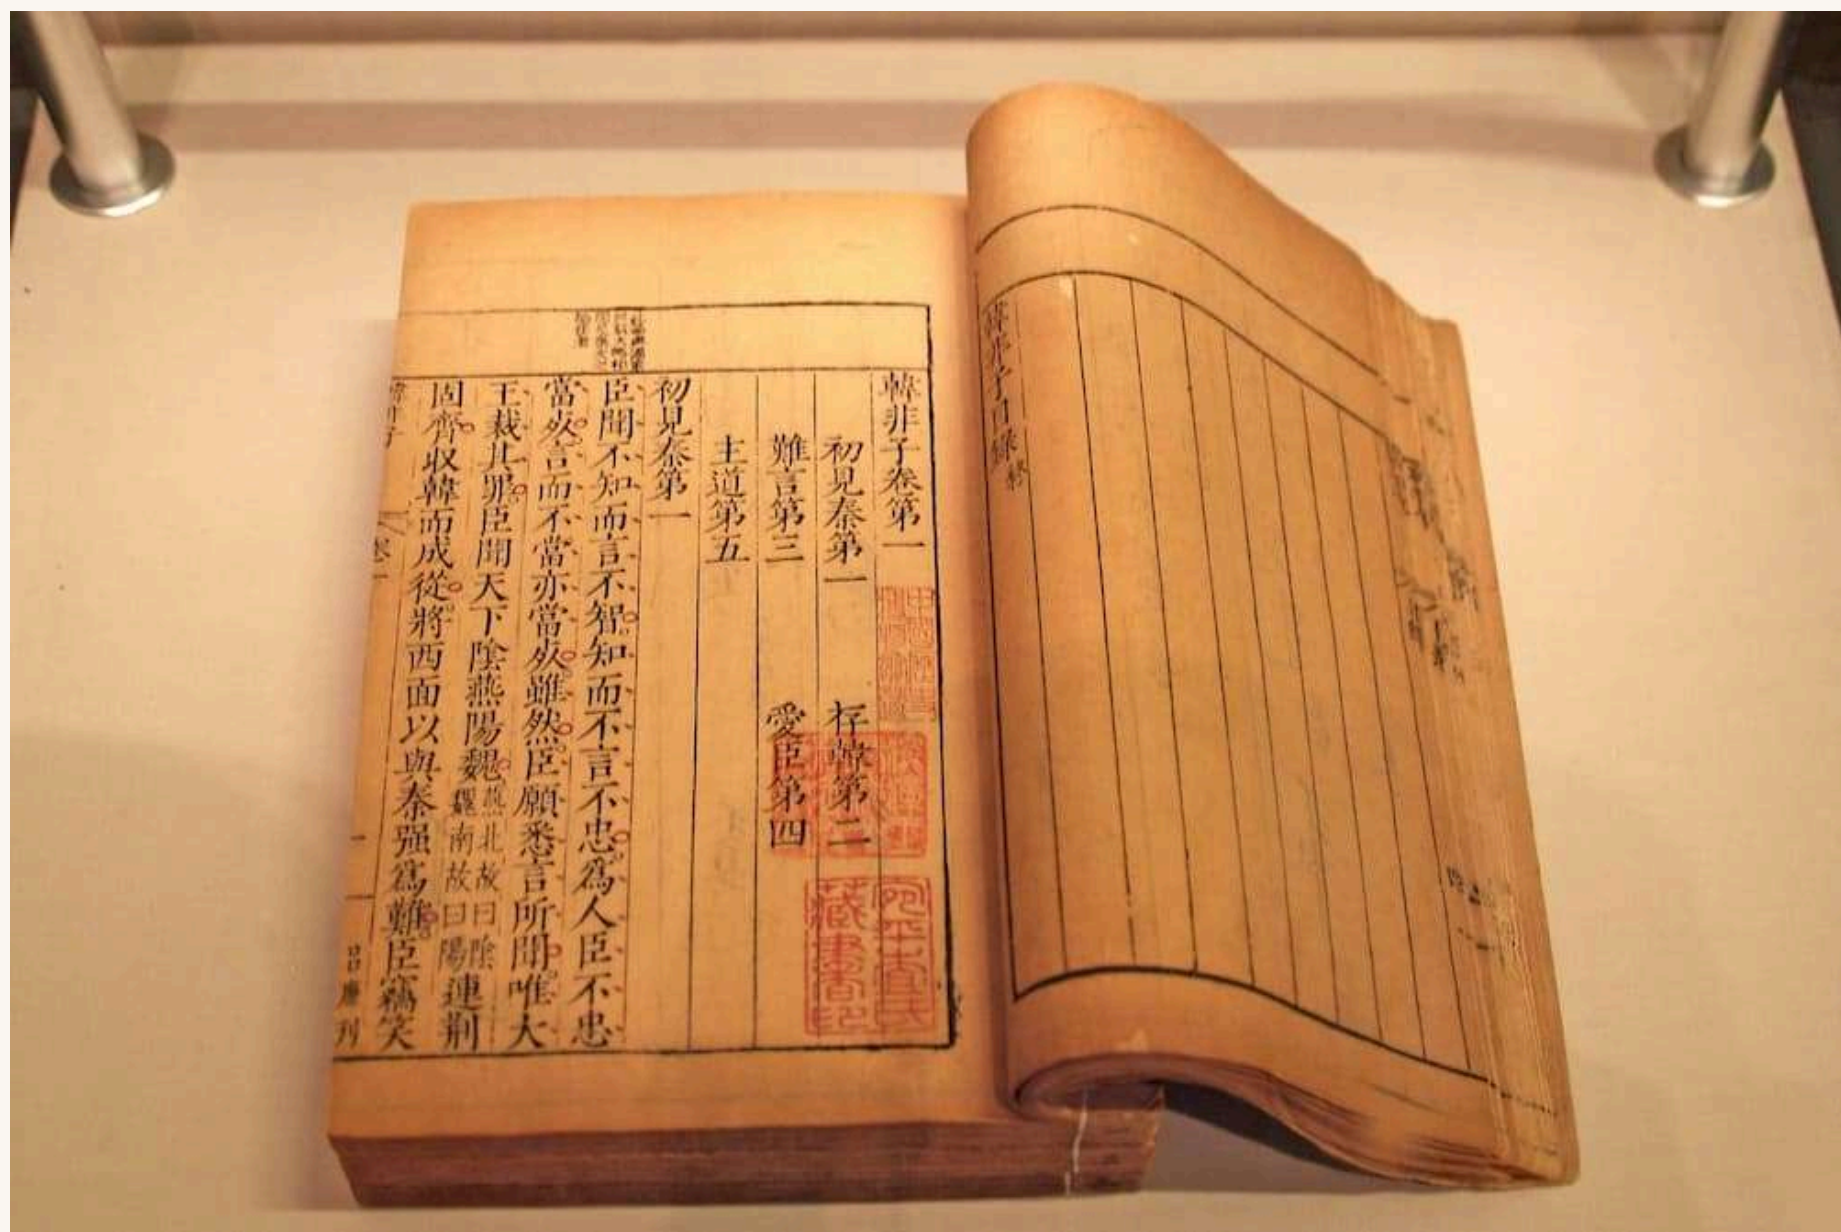 韓非子目錄終
韓非子卷第一
初見秦第一 存韓第二
難言第三 愛臣第四
主道第五
初見秦第一
臣聞不知而言不智知而不言不忠爲人臣不忠
當死言而不當亦當死雖然臣願悉言所聞唯大
王裁其罪臣聞天下陰燕陽魏燕北故曰陰魏南故曰陽連荆
固齊收韓而成從將西面以與秦强爲難臣竊笑
韓非子
卷一
藏書印